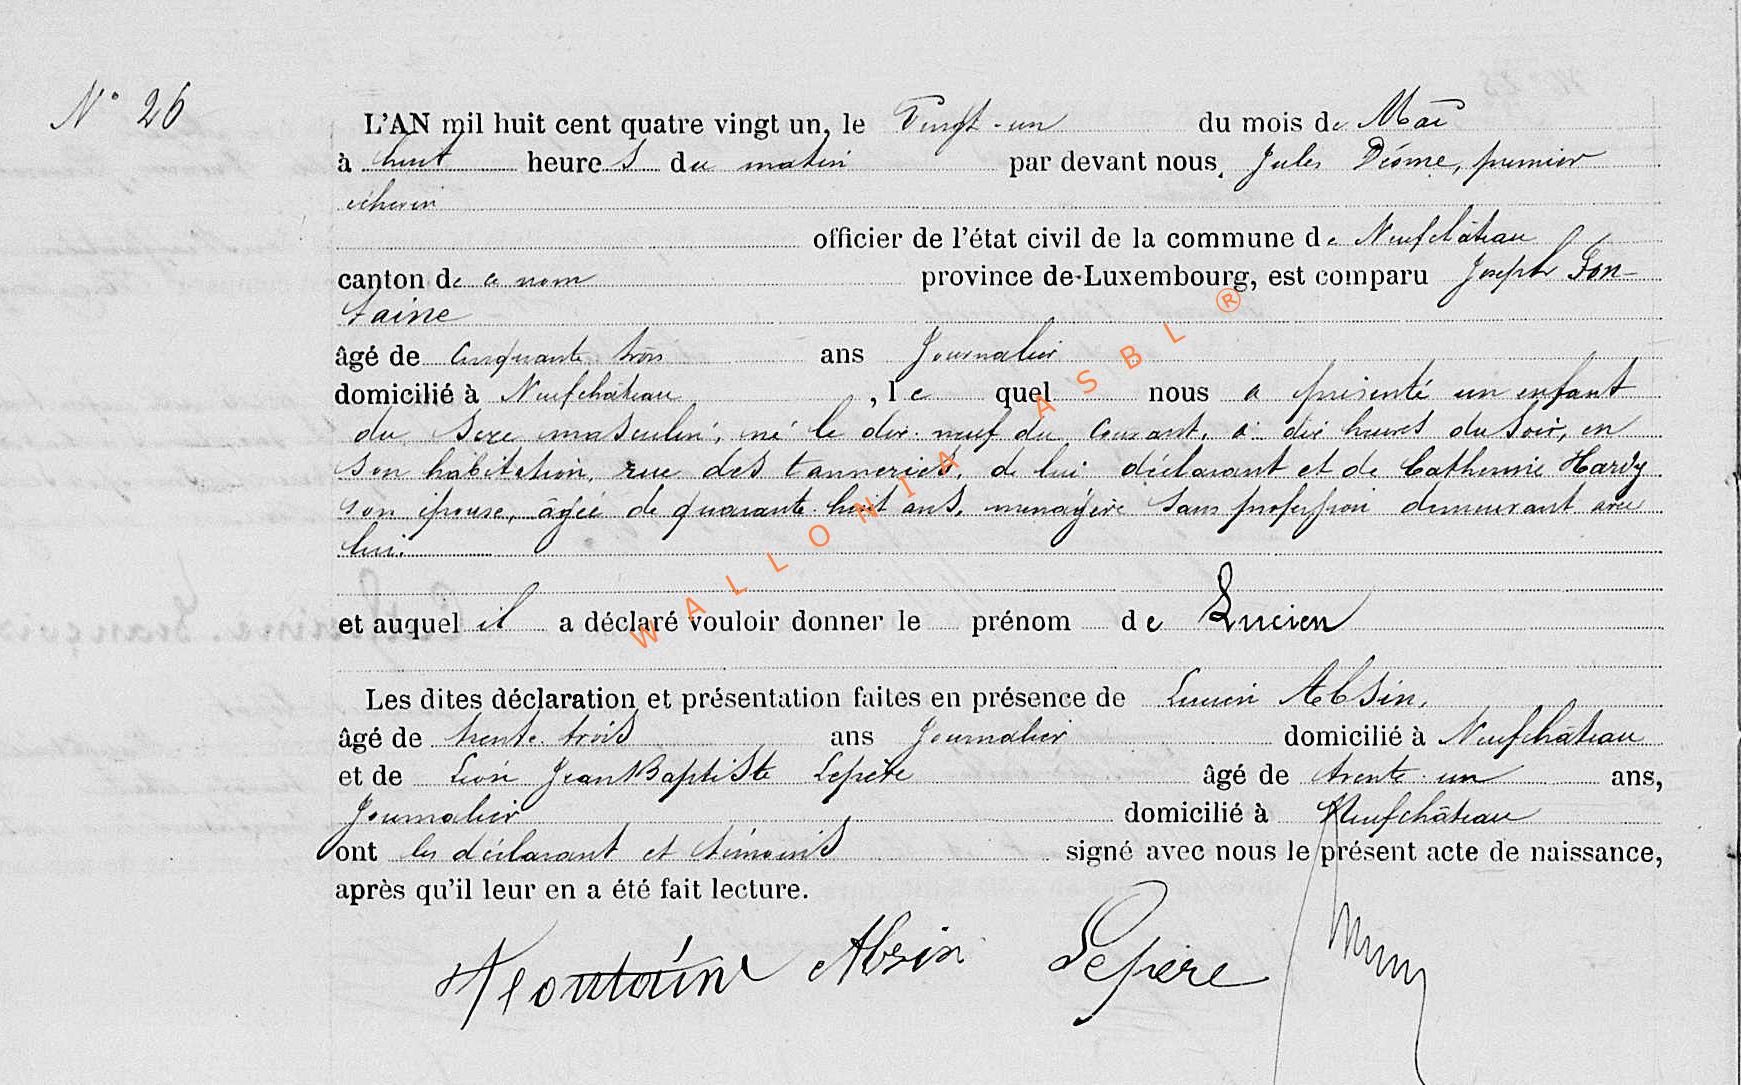 N° 26
L'AN mil huit cent quatre vingt un, le Vingt-un du mois de Mai
à huit heures du matin par devant nous, Jules Déome, premier
échevin
officier de l'état civil de la commune de Neufchâteau
canton de ce nom province de Luxembourg, est comparu Joseph Fon-
taine
âgé de cinquante trois ans Journalier
domicilié à Neufchâteau, lequel nous a présenté un enfant
du sexe masculin, né le dix-neuf du courant, à dix heures du soir, en
son habitation, rue des tanneries, de lui déclarant et de Catherine Hardy
son épouse, âgée de quarante-huit ans, menagère sans profession demeurant avec
lui.
et auquel il a déclaré vouloir donner le prénom de Lucien
Les dites déclaration et présentation faites en présence de Lucien Absin,
âgé de trente-trois ans Journalier domicilié à Neufchâteau
et de Léon Jean Baptiste Lepère âgé de trente-un ans,
Journalier domicilié à Neufchâteau
ont les déclarant et témoins signé avec nous le présent acte de naissance,
après qu'il leur en a été fait lecture.
Absin Lepère
WALLONIA ASBL ®